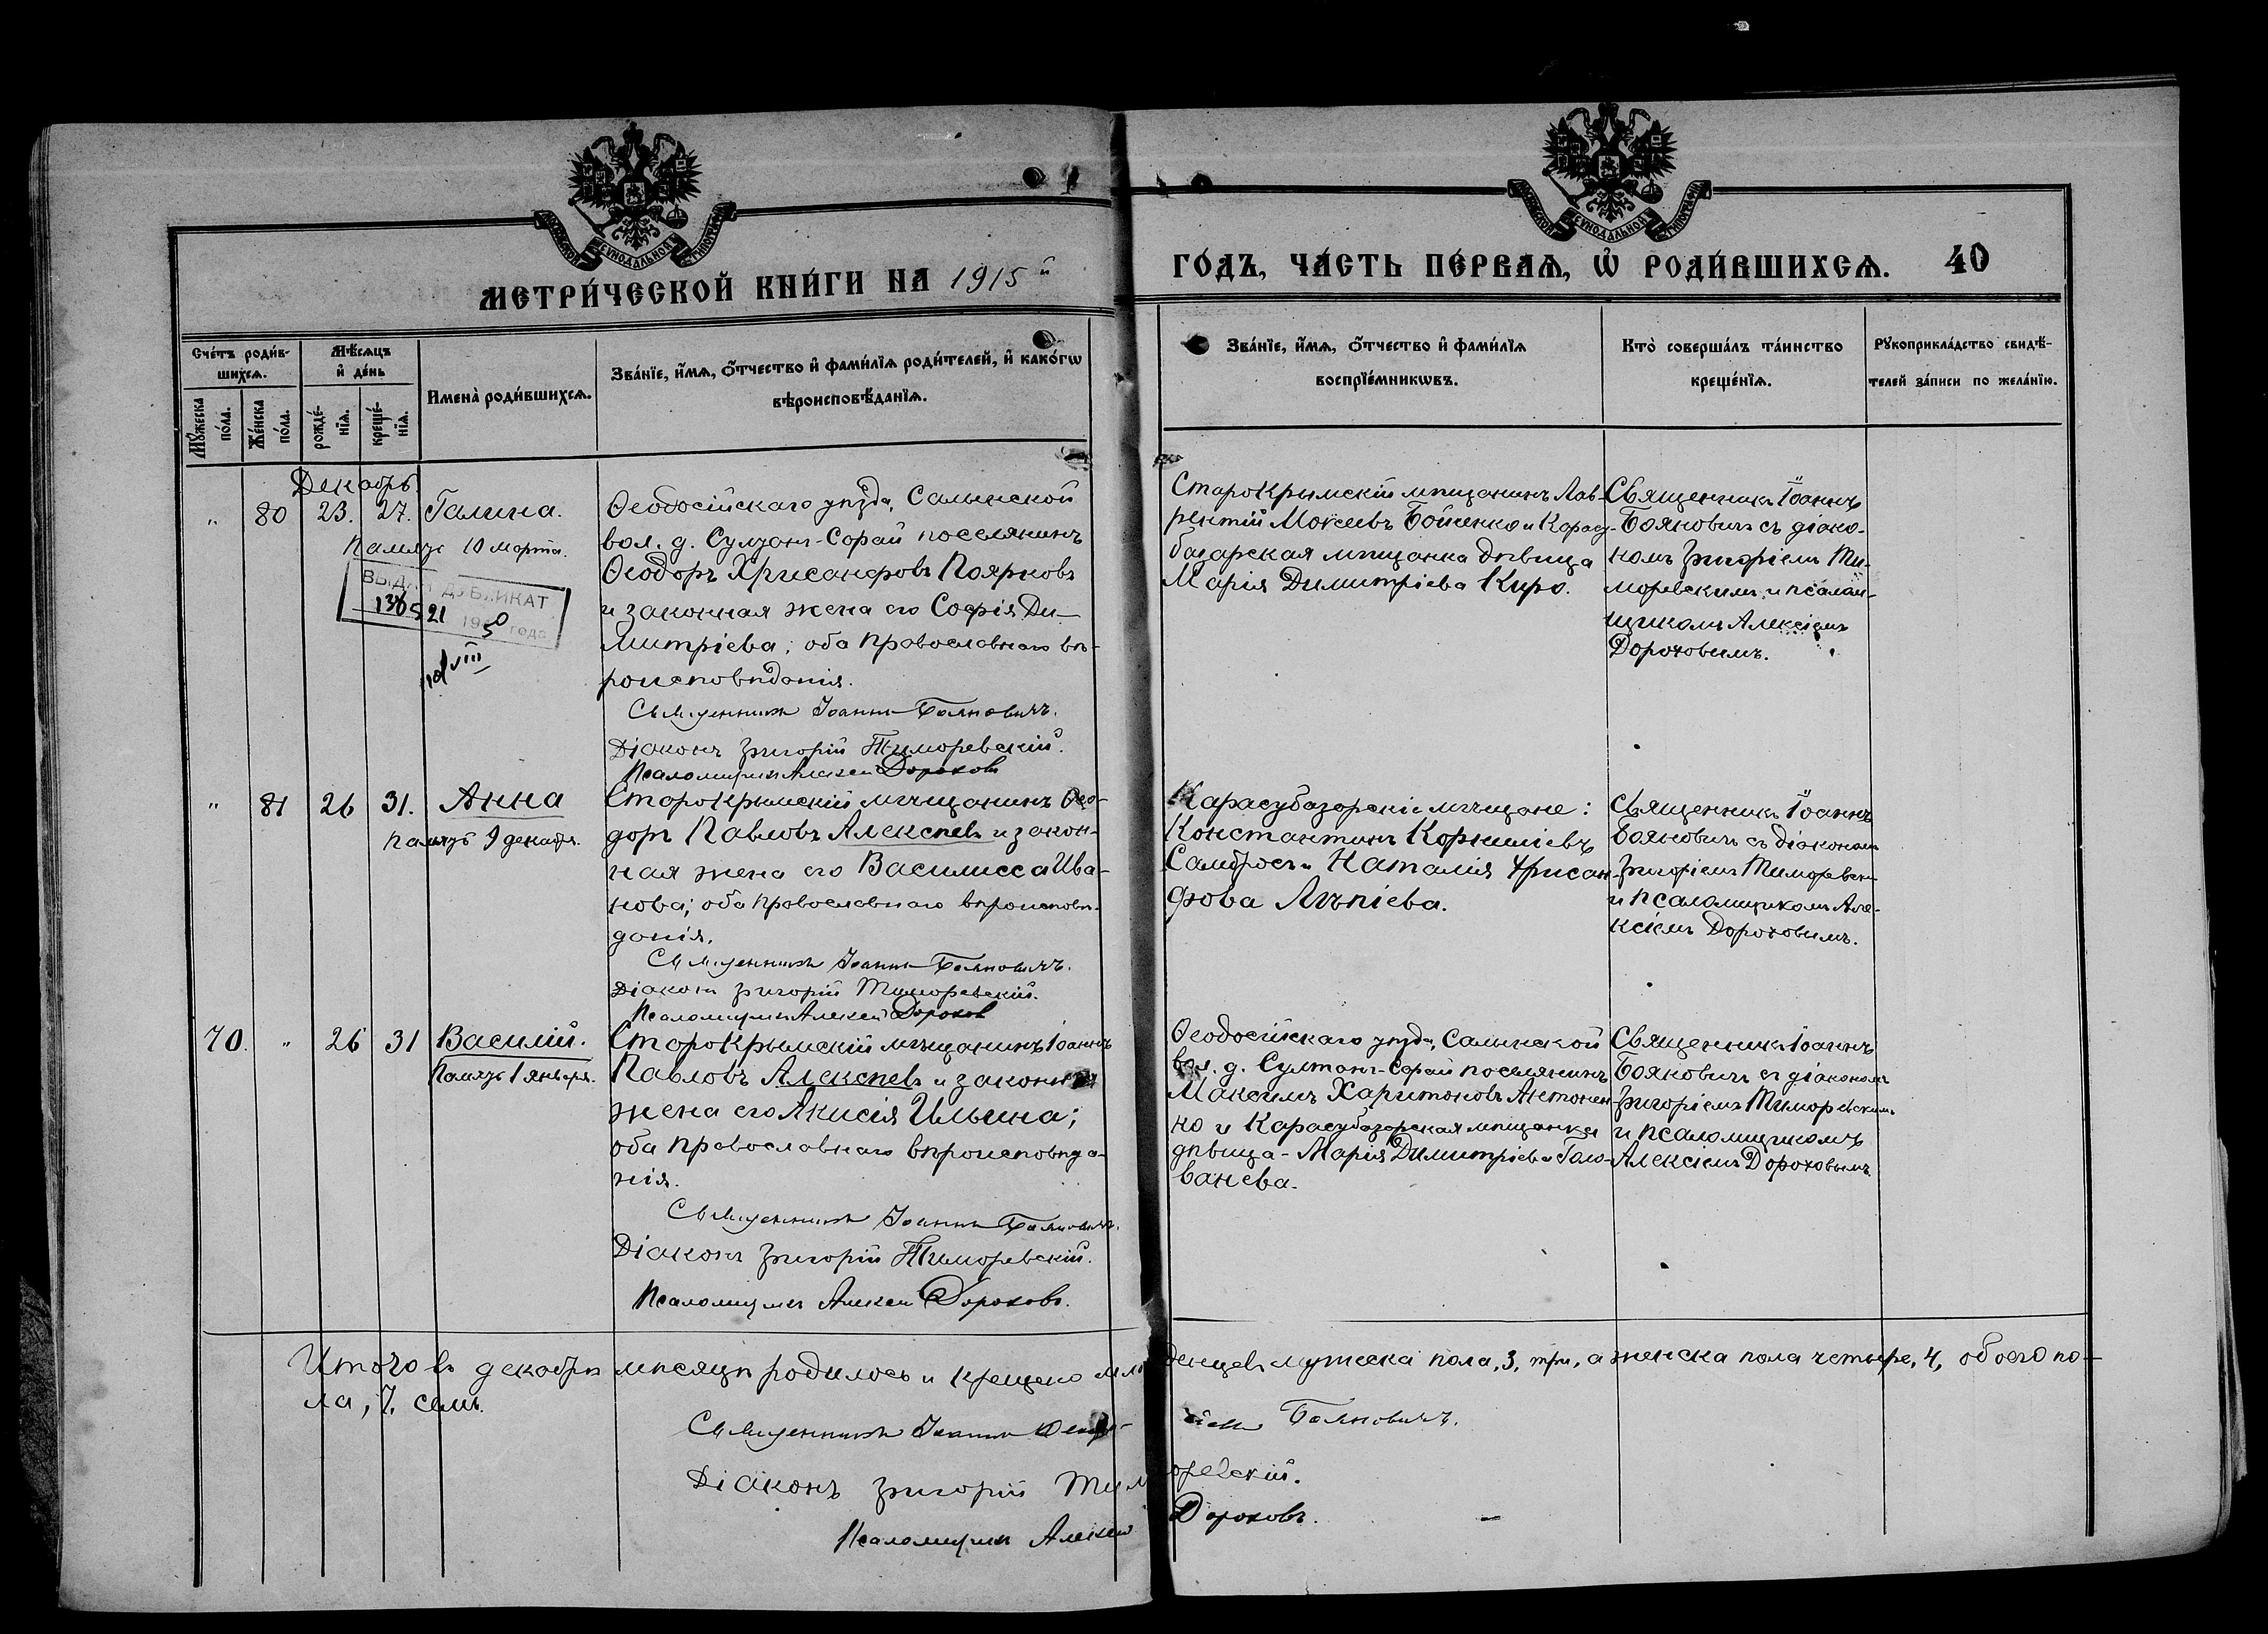 МЕТРИ́ЧЕСКОЙ КНИ́ГИ НА 1915й
ГО́ДЪ, ЧА́СТЬ ПЕ́РВАѦ, Ѡ҆ РОДИ́ВШИХСѦ. 40
Сче́тъ роди́в-
шихсѧ.
Мꙋ́жеска по́ла.
Же́нска по́ла.
Мѣ́сѧцъ
и҆ де́нь
рожде́-
нїѧ.
креще́-
нїѧ.
И҆мена̀ роди́вшихсѧ.
Зва́нїе, и҆́мѧ, ѻ҆́тчество и҆ фами́лїѧ роди́телей, и҆ како́гѡ
вѣроисповѣ́данїѧ.
Зва́нїе, и҆́мѧ, ѻ҆́тчество и҆ фами́лїѧ
воспрїе́мникѡвъ.
Кто̀ соверша́лъ та́инство
креще́нїѧ.
Рꙋкоприкла́дство свидѣ́-
телей за́писи по жела́нїю.
Декабрь.
" 80 23. 27. Галина.
Память 10 марта.
ВЫДАН ДУБЛИКАТ
1950 года
10/VIII
Ѳеодосійскаго уѣзда, Салынской
вол. д. Султанъ-Сарай поселянинъ
Ѳеодоръ Хрисанфовъ Поярковъ
и законная жена его Софія Ди-
митріева; оба православнаго вѣ-
роисповѣданія.
Священникъ Іоаннъ Бояновичъ.
Діаконъ Григорій Тиморевскій.
Псаломщикъ Алексѣй Дороховъ
Старокрымскій мѣщанинъ Лав-
рентій Моѵсеевъ Бойченко и Карасу-
базарская мѣщанка дѣвица
Марія Димитріева Киро.
Священникъ Іоаннъ
Бояновичъ съ діако-
номъ Григоріемъ Ти-
моревскимъ и псалом-
щикомъ Алексіемъ
Дороховымъ.
" 81 26 31. Анна
Память 9 декабря.
Старокрымскій мѣщанинъ Ѳео-
доръ Павловъ Алексѣевъ и закон-
ная жена его Василисса Ива-
нова; оба православнаго вѣроисповѣ-
данія.
Священникъ Іоаннъ Бояновичъ.
Діаконъ Григорій Тиморевскій.
Псаломщикъ Алексѣй Дороховъ
Карасубазарскіе мѣщане:
Константинъ Корниліевъ
Самбросъ и Наталія Хрисан-
фова Алѣпіева.
Священникъ Іоаннъ
Бояновичъ съ діакономъ
Григоріемъ Тиморевск.
и псаломщикомъ Але-
ксіемъ Дороховымъ.
70. " 26 31 Василій.
Память 1 января.
Старокрымскій мѣщанинъ Іоаннъ
Павловъ Алексѣевъ и законная
жена его Анисія Ильина;
оба православнаго вѣроисповѣда-
нія.
Священникъ Іоаннъ Бояновичъ.
Діаконъ Григорій Тиморевскій.
Псаломщикъ Алексѣй Дороховъ.
Ѳеодосійскаго уѣзда, Салынской
вол. д. Султанъ-Сарай поселянинъ
Максимъ Харитоновъ Антонен-
ко и Карасубазарская мѣщанка
дѣвица - Марія Димитріева Голо-
ванева.
Священникъ Іоаннъ
Бояновичъ съ діакономъ
Григоріемъ Тиморевскимъ
и псаломщикомъ
Алексіемъ Дороховымъ.
Итого въ декабрѣ мѣсяцѣ родилось и крещено младенцевъ мужеска пола, 3, три, а женска пола четыре, 4, обоего по-
ла, 7. семь.
Священникъ Іоаннъ Бояновичъ.
Діаконъ Григорій Тиморевскій.
Псаломщикъ Алексѣй Дороховъ.